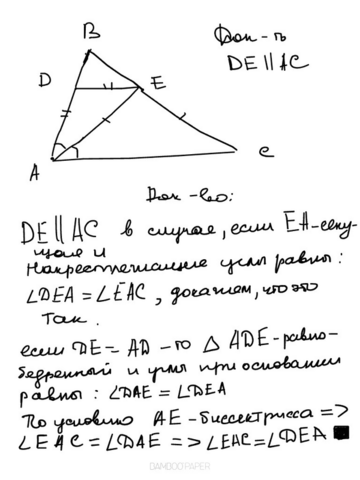 B
Док-ть
DE || AC
D
E
A
C
Док-во:
DE || AC в случае, если EA-секу-
щая и
Накрестлежащие углы равны:
∠DEA = ∠EAC, докажем, что это
так.
если DE = AD - то △ ADE - равно-
бедренный и углы при основании
равны: ∠DAE = ∠DEA
По условию AE - биссектрисса =>
∠EAC = ∠DAE => ∠EAC = ∠DEA ■